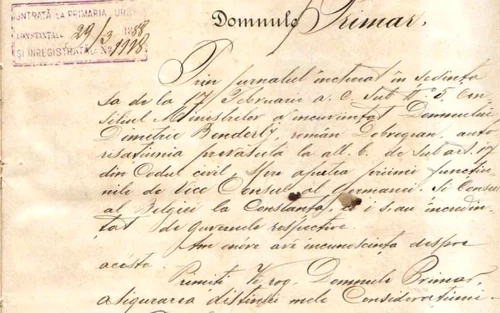 INTRATĂ LA PRIMĂRIA URBEI
CONSTANTA LA 29/3 188
ȘI INREGISTRATĂ LA No 1998
Domnule Primar,
Prin jurnalul încheiat în sedinta
sa de la 17 Februarie a. c. sub No 5, Con
siliul Ministrilor a incuviintat Domnului
Dimitrie Benderly, român Dobrogean, auto
risatiunea prevăzuta la al. b. de sub art. 17
din Codul civil, spre a putea primi functiu
nile de Vice Consul al Germaniei si Consul
al Belgiei la Constanta, ce i s'au incredin
tat de guvernele respective.
Am onóre a vě incunosciinta despre
acésta.
Primiti Vě rog, Domnule Primar,
asigurarea distinsei mele Consideratiuni.